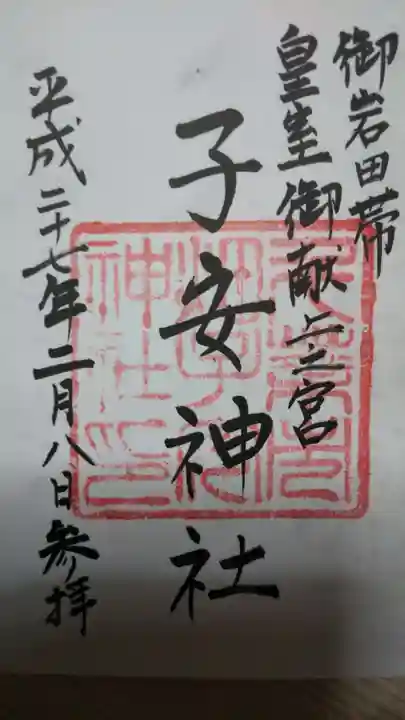 御岩田帯
皇室御献上之宮
子安神社
平成二十七年二月八日参拝